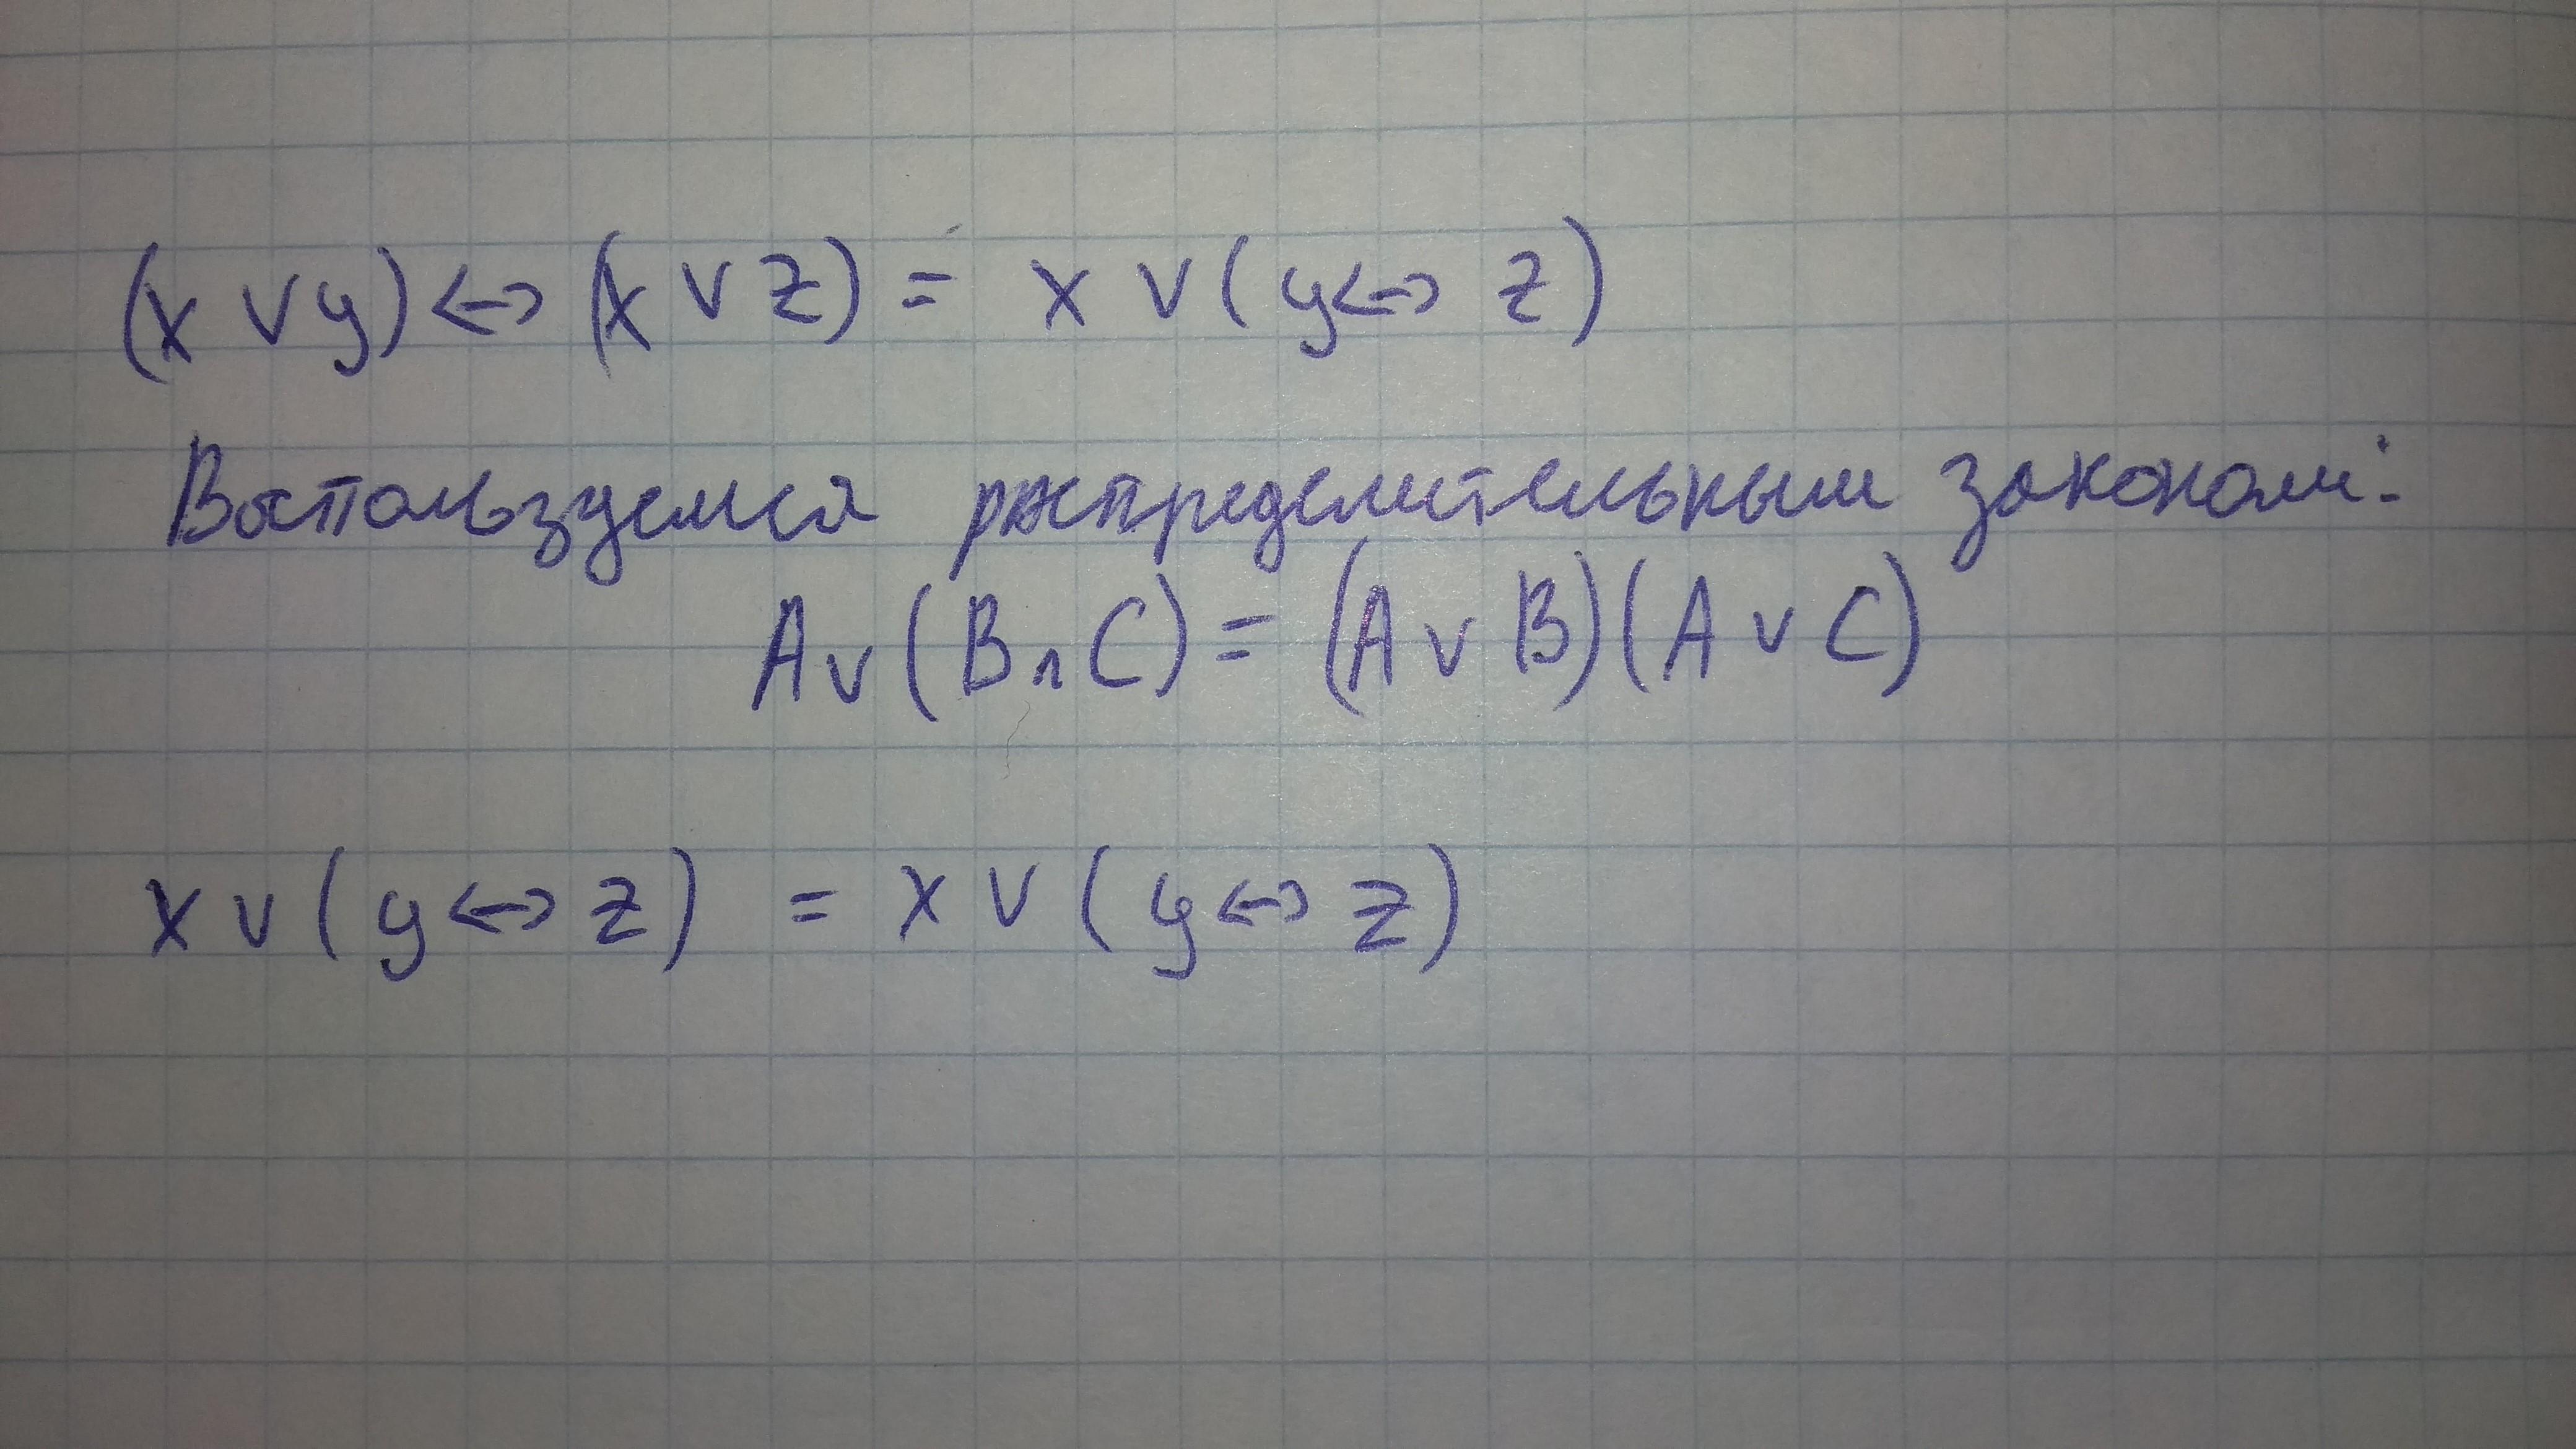 (x ∨ y) ↔ (x ∨ z) = x ∨ (y ↔ z)
Воспользуемся распределительным законом:
A ∨ (B ∧ C) = (A ∨ B)(A ∨ C)
x ∨ (y ↔ z) = x ∨ (y ↔ z)